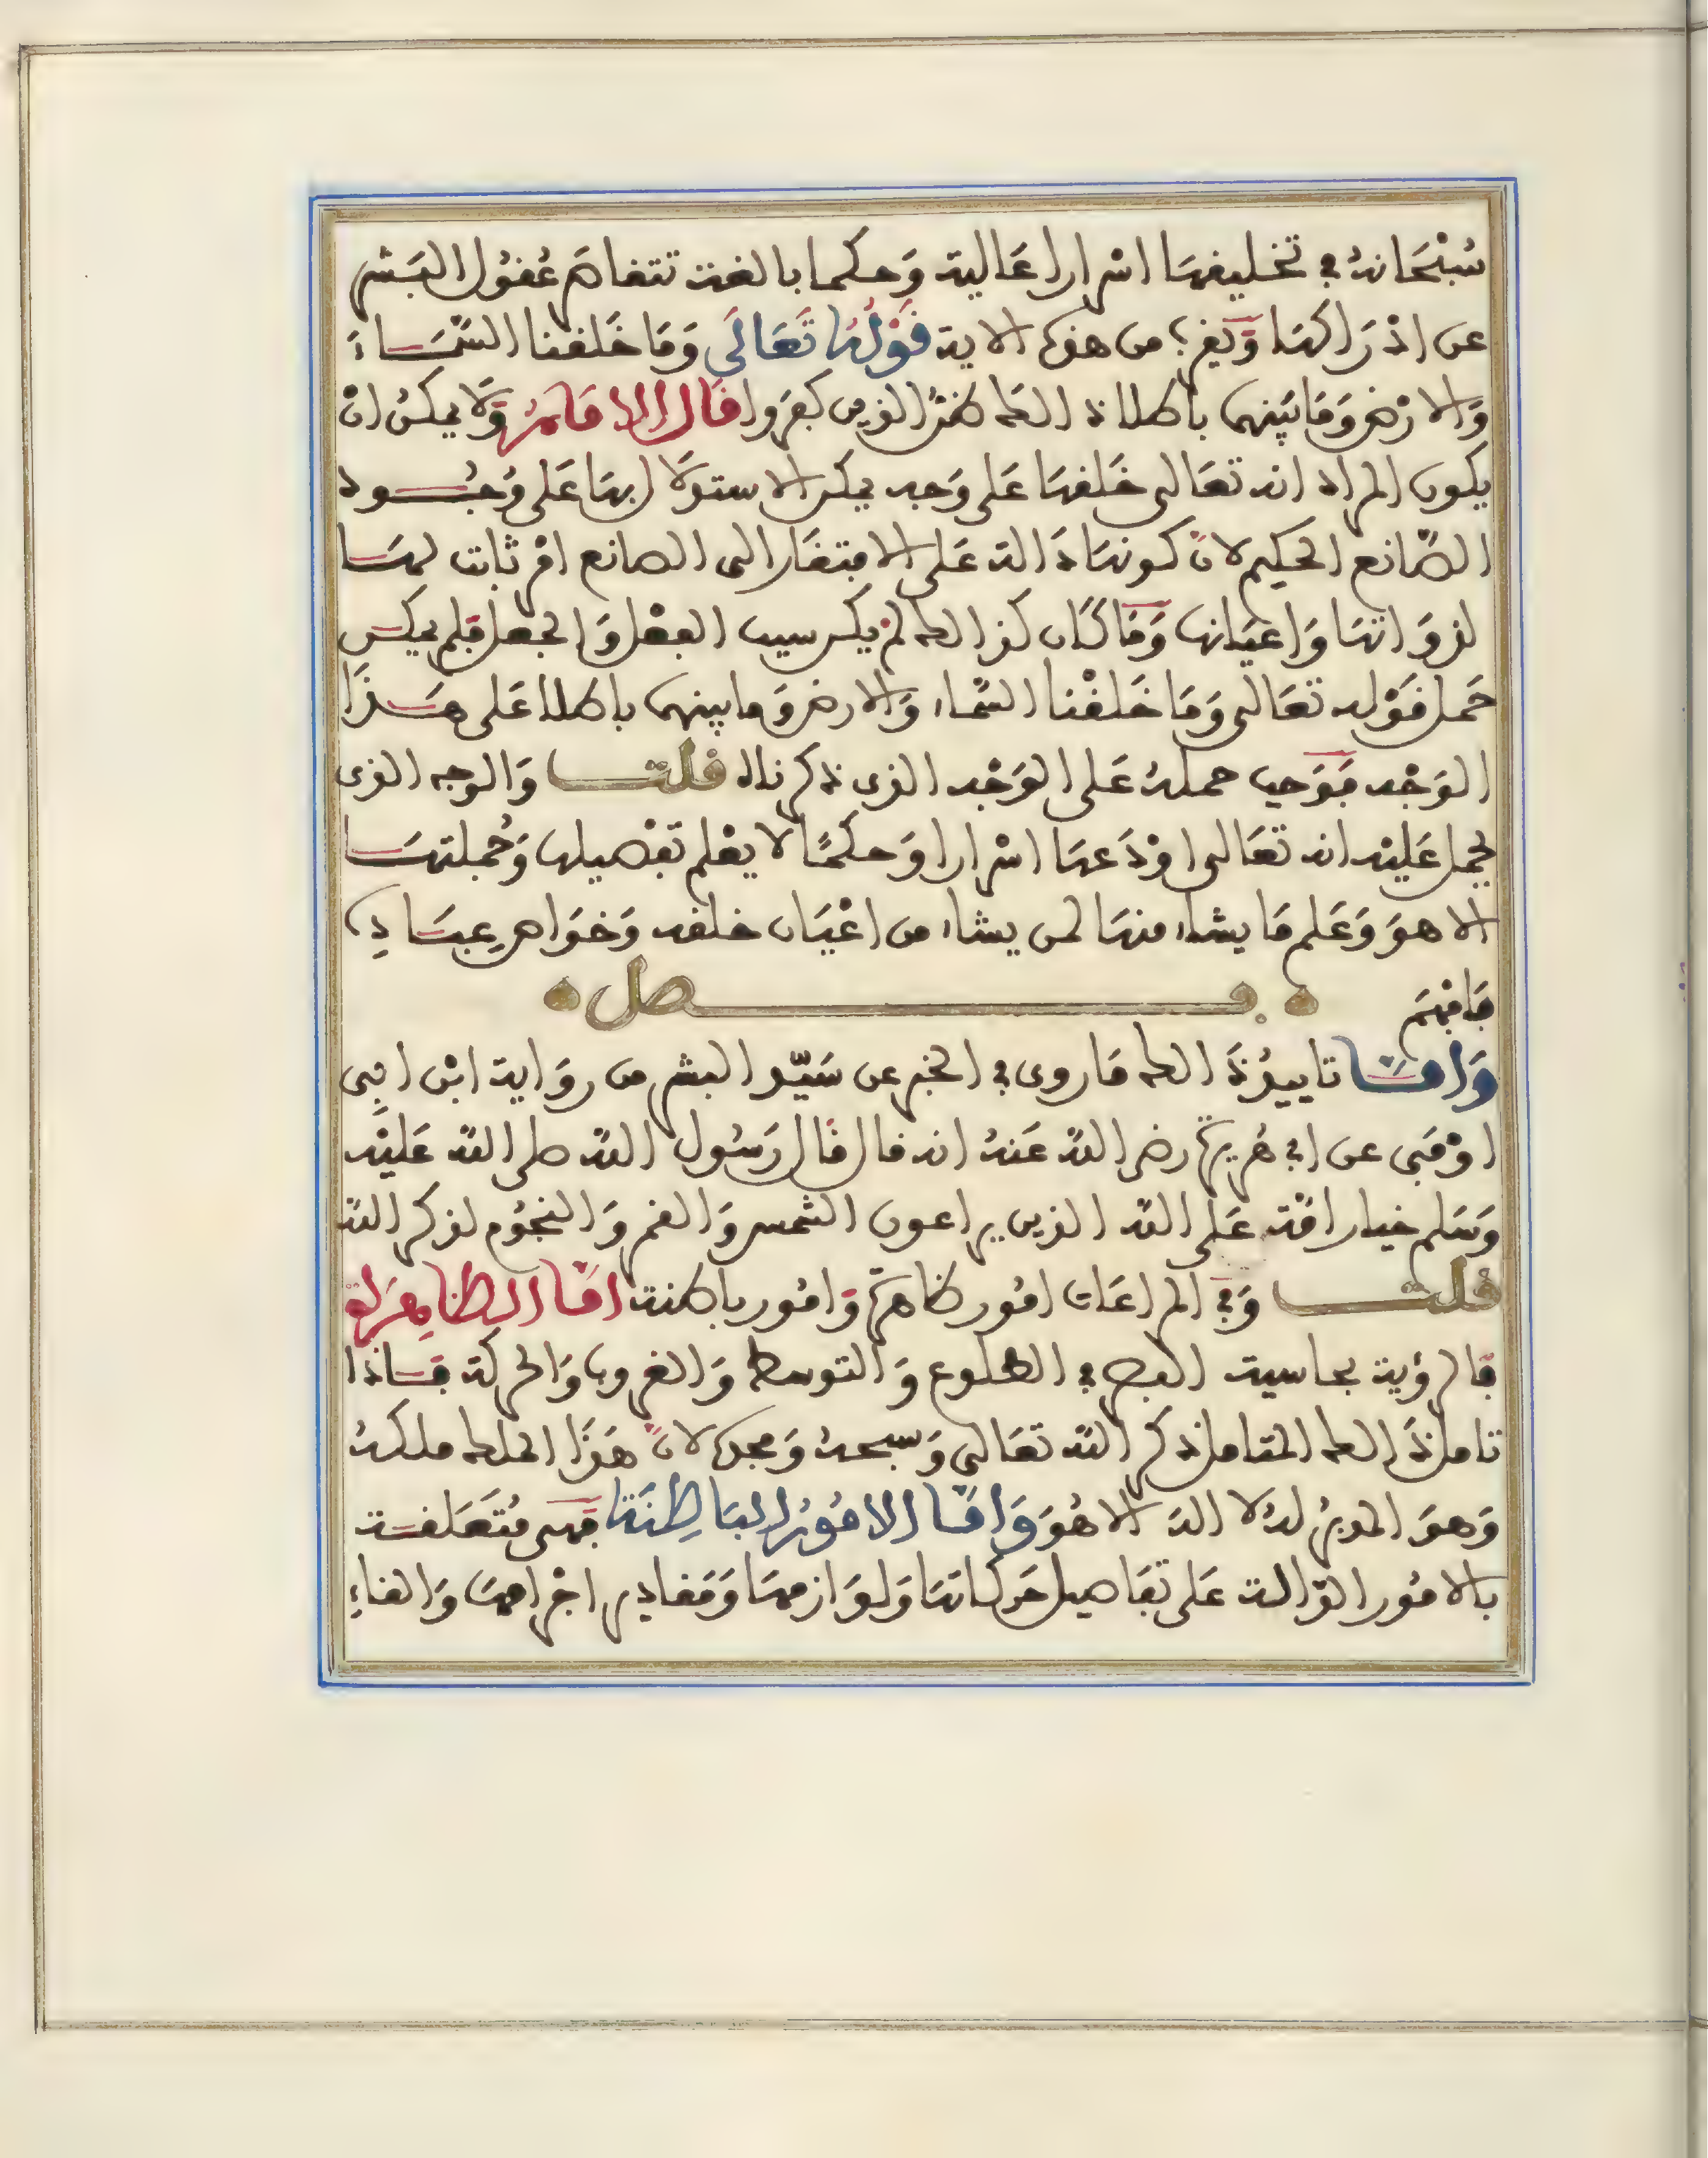 سُبْحَانهُ في تخليفها اسْرارا عَالية وَحكما بالغة تتفاصَر عُقول البَشر
عن ادْرَاكهَا وَيقرب من هذه الاية قَوْلُهُ تَعَالَى وَمَا خَلقنا السَّمَاءَ
وَالارْض وَمَا بَيْنهما باطلا ذلك ظنّ الذين كفروا قَالَ الامَامُ وَلَا يمكن انْ
يكون المراد انه تعَالى خَلقهَا عَلى وَجه يمكن الاستدلال بهَا عَلى وُجُود
الصَّانع الحكيم لانّ كونهَا دَالة عَلى الافتقار الى الصانع امْر ثابت لهَا
لذوَاتهَا وَاعْيَانها وَمَا كَان كذلك لمْ يكن سبب الفعْل وَالجعل فلم يمكن
حَمل قَوْله تعَالى وَمَا خَلَقْنا السَّماء وَالارض وَما بينهما باطلا عَلى هَذَا
الوَجْه فوَجب حملهُ عَلى الوَجْه الذى ذكرناه قلت وَالوجه الذى
يحمل عَليْه انه تعَالى اوْدَعهَا اسْرارا وَحكمًا لا يعْلم تفْصيلها وَجُملتهَا
الا هوَ وَعَلم مَا يشاء منهَا لمن يشاء من اعْيَان خلقه وَخوَاص عبَادِه
فَافهَم فصل
وَامَّا تاييدُ ذَلك مَا روى في الخبر عن سَيّد البشر من روَاية ابْن ابى
اوْفَى عن ابي هُريرة رضي اللّه عَنهُ انه قال قَال رَسُول اللّه صلى اللّه عَليْه
وَسَلم خيار امّة عَلى اللّه الذين يراعون الشمس وَالقمر وَالنجُوم لذكر اللّه
قلت وَفي المراعَات امُور ظاهرَة وَامُور باطنة امَّا الظاهِرَة
فَالرؤية بحاسية البصر في الطلوع وَالتوسط وَالغروب وَالحركة فَاذَا
تامل ذَلك المتامل ذكر اللّه تعَالى وَسبحهُ وَمجده لانّ هَذَا الملك ملكهُ
وَهوَ المدبرُ لهُ لا اله الا هُوَ وَامَّا الامُورُ البَاطِنَة فهى مُتعَلقة
بالامُور الدّالة عَلى تفَاصيل حَركاتهَا وَلوَازمهَا وَمَقادير اجْرامهَا وَالقاءِ